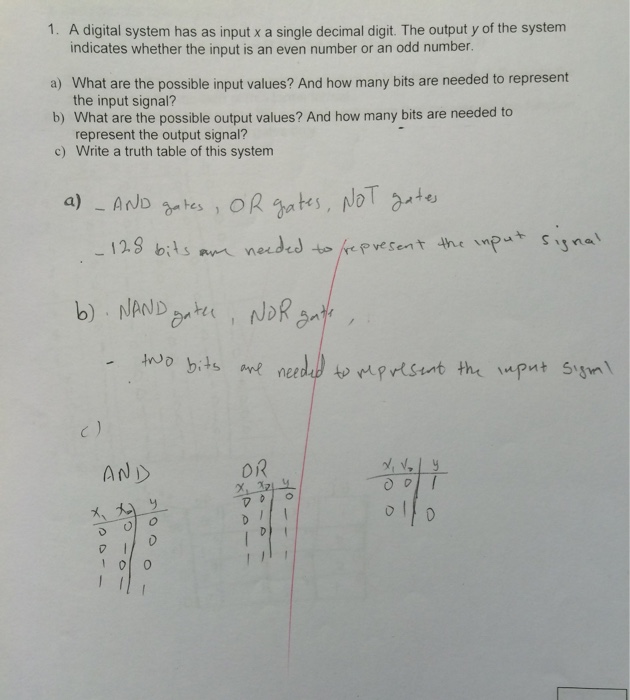 1. A digital system has as input x a single decimal digit. The output y of the system
indicates whether the input is an even number or an odd number.
a) What are the possible input values? And how many bits are needed to represent
the input signal?
b) What are the possible output values? And how many bits are needed to
represent the output signal?
c) Write a truth table of this system
a) - AND gates, OR gates, NOT gates
- 128 bits are needed to represent the input signal
b) . NAND gates, NOR gate,
- two bits are needed to represent the input signal
c)
AND
x₁ x₂ y
0 0 0
0 1 0
1 0 0
1 1 1
OR
x₁ x₂ y
0 0 0
0 1 1
1 0 1
1 1 1
x₁ y
0 0 1
0 1 0